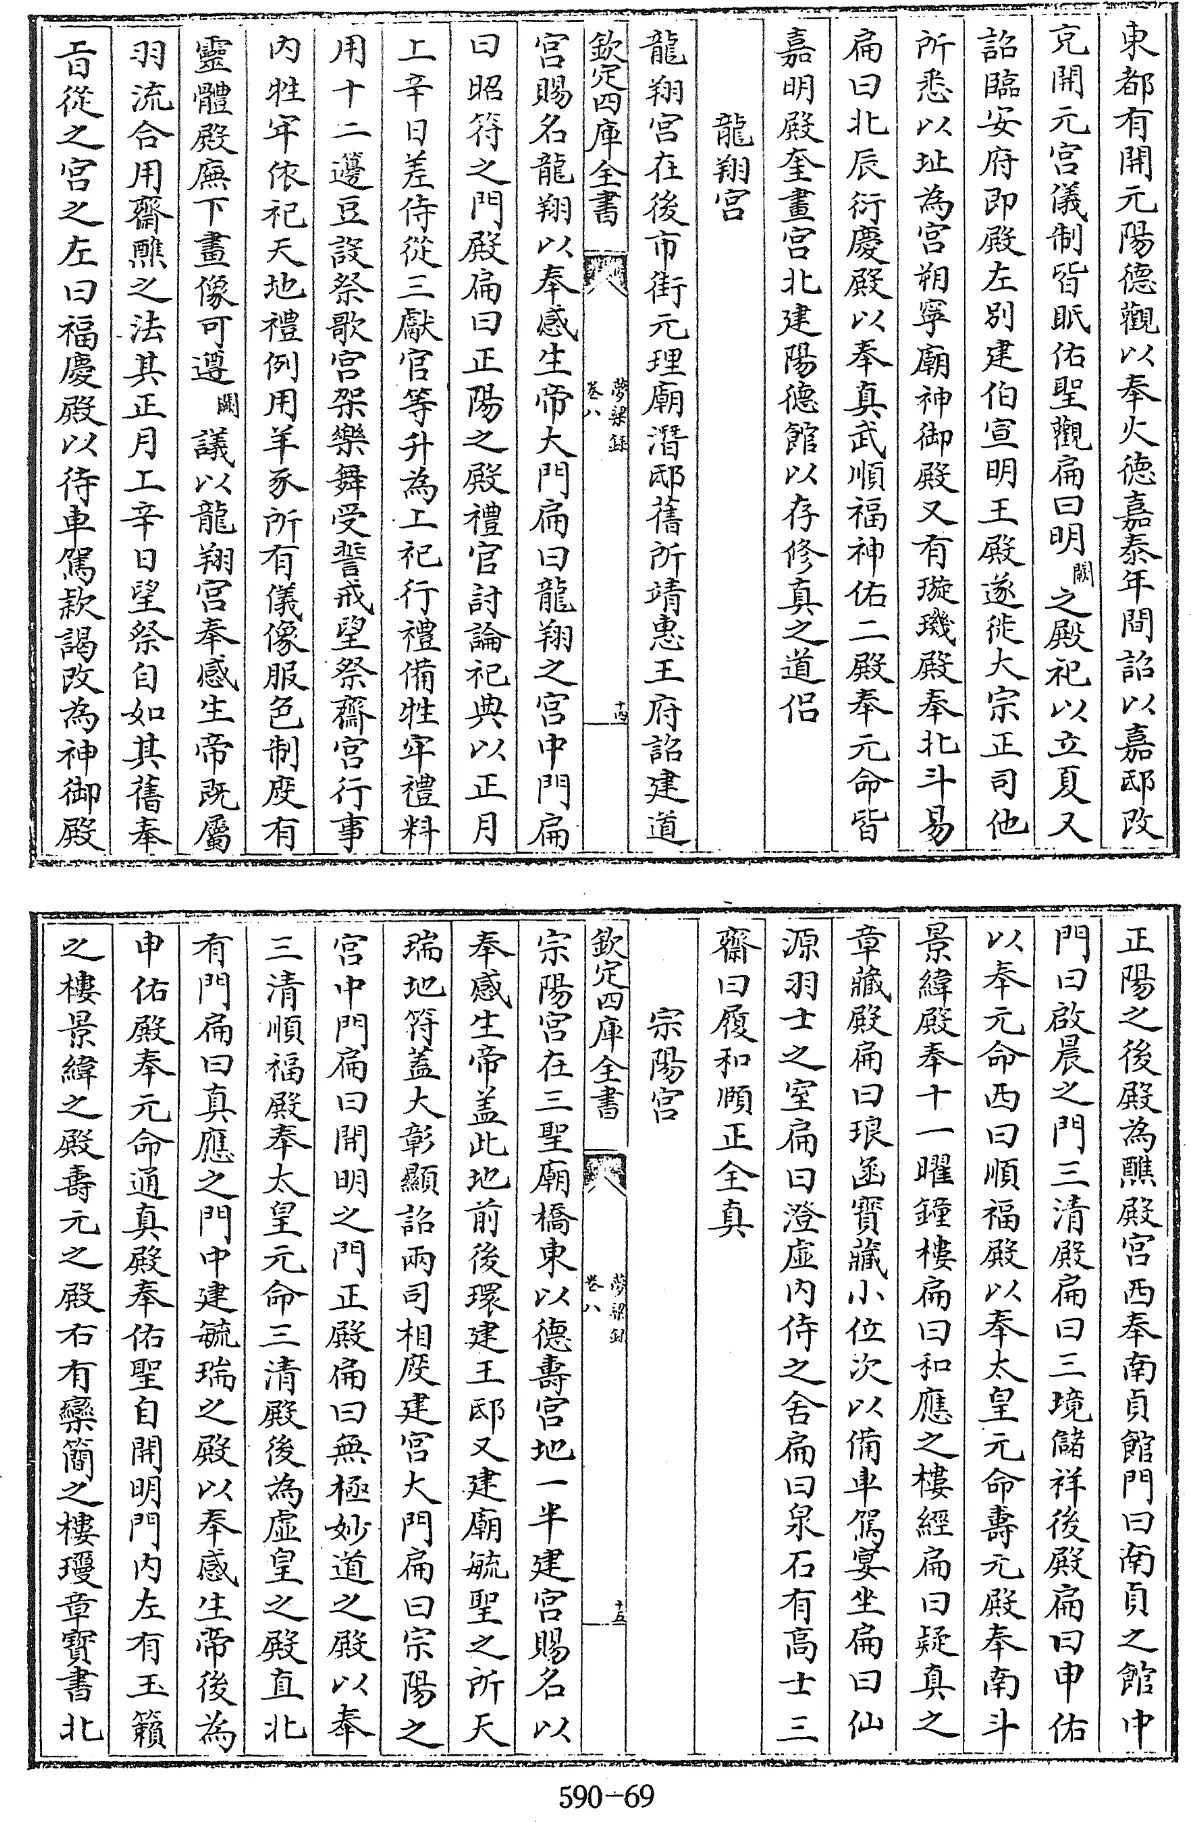 東都有開元陽德觀以奉火德嘉泰年間詔以嘉邸改
充開元宮儀制皆眂佑聖觀扁曰明闕之殿祀以立夏又
詔臨安府即殿左別建伯宣明王殿遂徙大宗正司他
所悉以址為宮朔寧廟神御殿又有璇璣殿奉北斗易
扁曰北辰衍慶殿以奉真武順福神佑二殿奉元命皆
嘉明殿奎畫宮北建陽德館以存修真之道侶
龍翔宮
龍翔宮在後市街元理廟潛邸舊所靖惠王府詔建道
欽定四庫全書
夢粱錄
卷八
十四
宮賜名龍翔以奉感生帝大門扁曰龍翔之宮中門扁
曰昭符之門殿扁曰正陽之殿禮官討論祀典以正月
上辛日差侍從三獻官等升為上祀行禮備牲牢禮料
用十二籩豆設祭歌宮架樂舞受誓戒望祭齋宮行事
內牲牢依祀天地禮例用羊豕所有儀像服色制度有
靈體殿廡下畫像可遵闕議以龍翔宮奉感生帝既屬
羽流合用齋醮之法其正月上辛日望祭自如其舊奉
旨從之宮之左曰福慶殿以待車駕款謁改為神御殿
正陽之後殿為醮殿宮西奉南真館門曰南真之館中
門曰啟晨之門三清殿扁曰三境儲祥後殿扁曰申佑
以奉元命西曰順福殿以奉太皇元命壽元殿奉南斗
景緯殿奉十一曜鐘樓扁曰和應之樓經扁曰凝真之
章藏殿扁曰琅函寶藏小位次以備車駕宴坐扁曰仙
源羽士之室扁曰澄虛內侍之舍扁曰泉石有高士三
齋曰履和順正全真
宗陽宮
欽定四庫全書
夢粱錄
卷八
十五
宗陽宮在三聖廟橋東以德壽宮地一半建宮賜名以
奉感生帝蓋此地前後環建王邸又建廟毓聖之所天
瑞地符蓋大彰顯詔兩司相度建宮大門扁曰宗陽之
宮中門扁曰開明之門正殿扁曰無極妙道之殿以奉
三清順福殿奉太皇元命三清殿後為虛皇之殿直北
有門扁曰真應之門中建毓瑞之殿以奉感生帝後為
申佑殿奉元命通真殿奉佑聖自開明門內左有玉籟
之樓景緯之殿壽元之殿右有欒簡之樓璦章寶書北
590-69